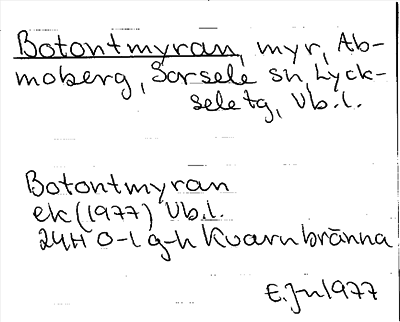 Botontmyran, myr, Ab-
moberg, Sorsele sn, Lyck-
sele tg, Vb.l.
Botontmyran
ek (1977) Vb.l.
24H 0-1 g-h Kvarnbränna
E.Jn 1977